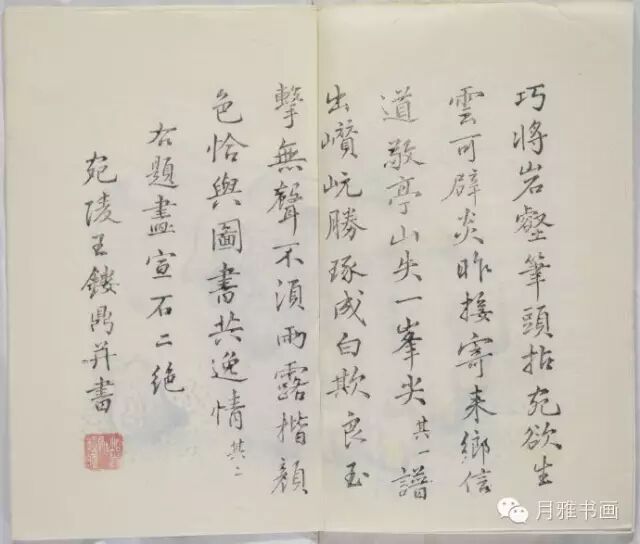 巧將岩壑筆頭拈宛欲生
雲可辟炎昨接寄来鄉信
道敬亭山失一峯尖其一譜
出巑岏勝琢成白欺良玉
擊無聲不須雨露揩顏
色恰與圖書共逸情其二
右題畫宣石二絕
宛陵王鏤鼎并書
月雅书画